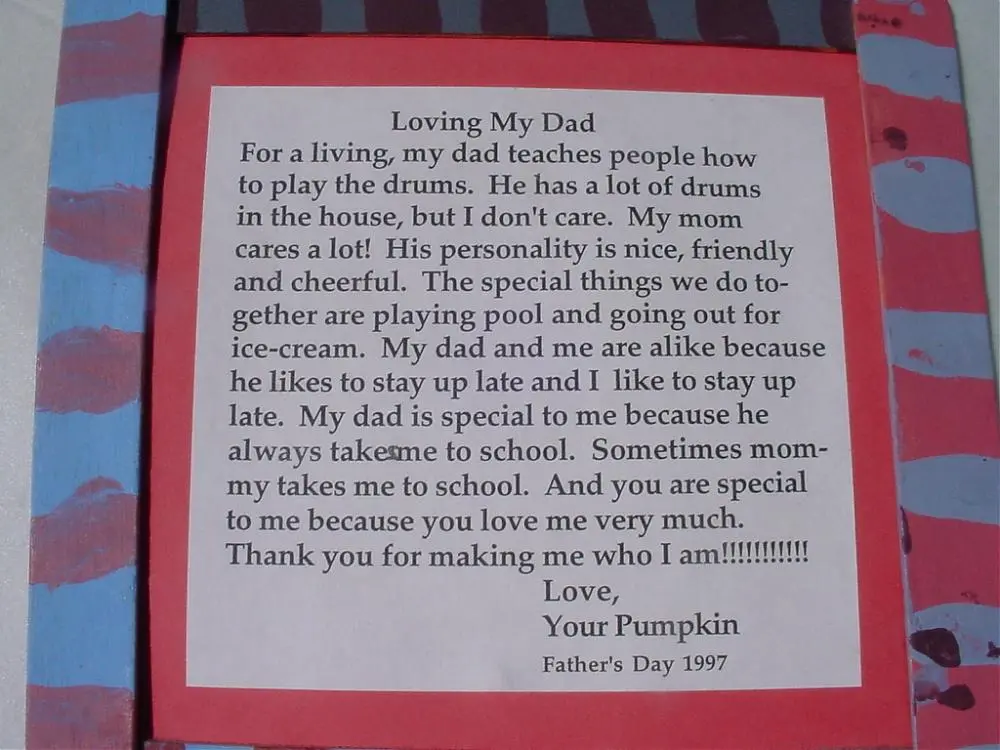 Loving My Dad
For a living, my dad teaches people how
to play the drums. He has a lot of drums
in the house, but I don't care. My mom
cares a lot! His personality is nice, friendly
and cheerful. The special things we do to-
gether are playing pool and going out for
ice-cream. My dad and me are alike because
he likes to stay up late and I like to stay up
late. My dad is special to me because he
always takes me to school. Sometimes mom-
my takes me to school. And you are special
to me because you love me very much.
Thank you for making me who I am!!!!!!!!!!!
Love,
Your Pumpkin
Father's Day 1997